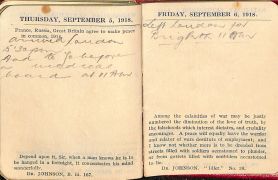 THURSDAY, SEPTEMBER 5, 1918.
France, Russia, Great Britain agree to make peace
in common, 1914.
arrived London
board at 11 Am
Depend upon it, Sir, when a man knows he is to
be hanged in a fortnight, it concentrates his mind
wonderfully.
DR. JOHNSON, B. iii. 167.
FRIDAY, SEPTEMBER 6, 1918.
Left London for
Brighton 11 Am
Among the calamities of war may be justly
numbered the diminution of the love of truth, by
the falsehoods which interest dictates, and credulity
encourages. A peace will equally leave the warrior
and relater of wars destitute of employment; and
I know not whether more is to be dreaded from
streets filled with soldiers accustomed to plunder,
or from garrets filled with scribblers accustomed
to lie.
DR. JOHNSON, "Idler," No. 30.